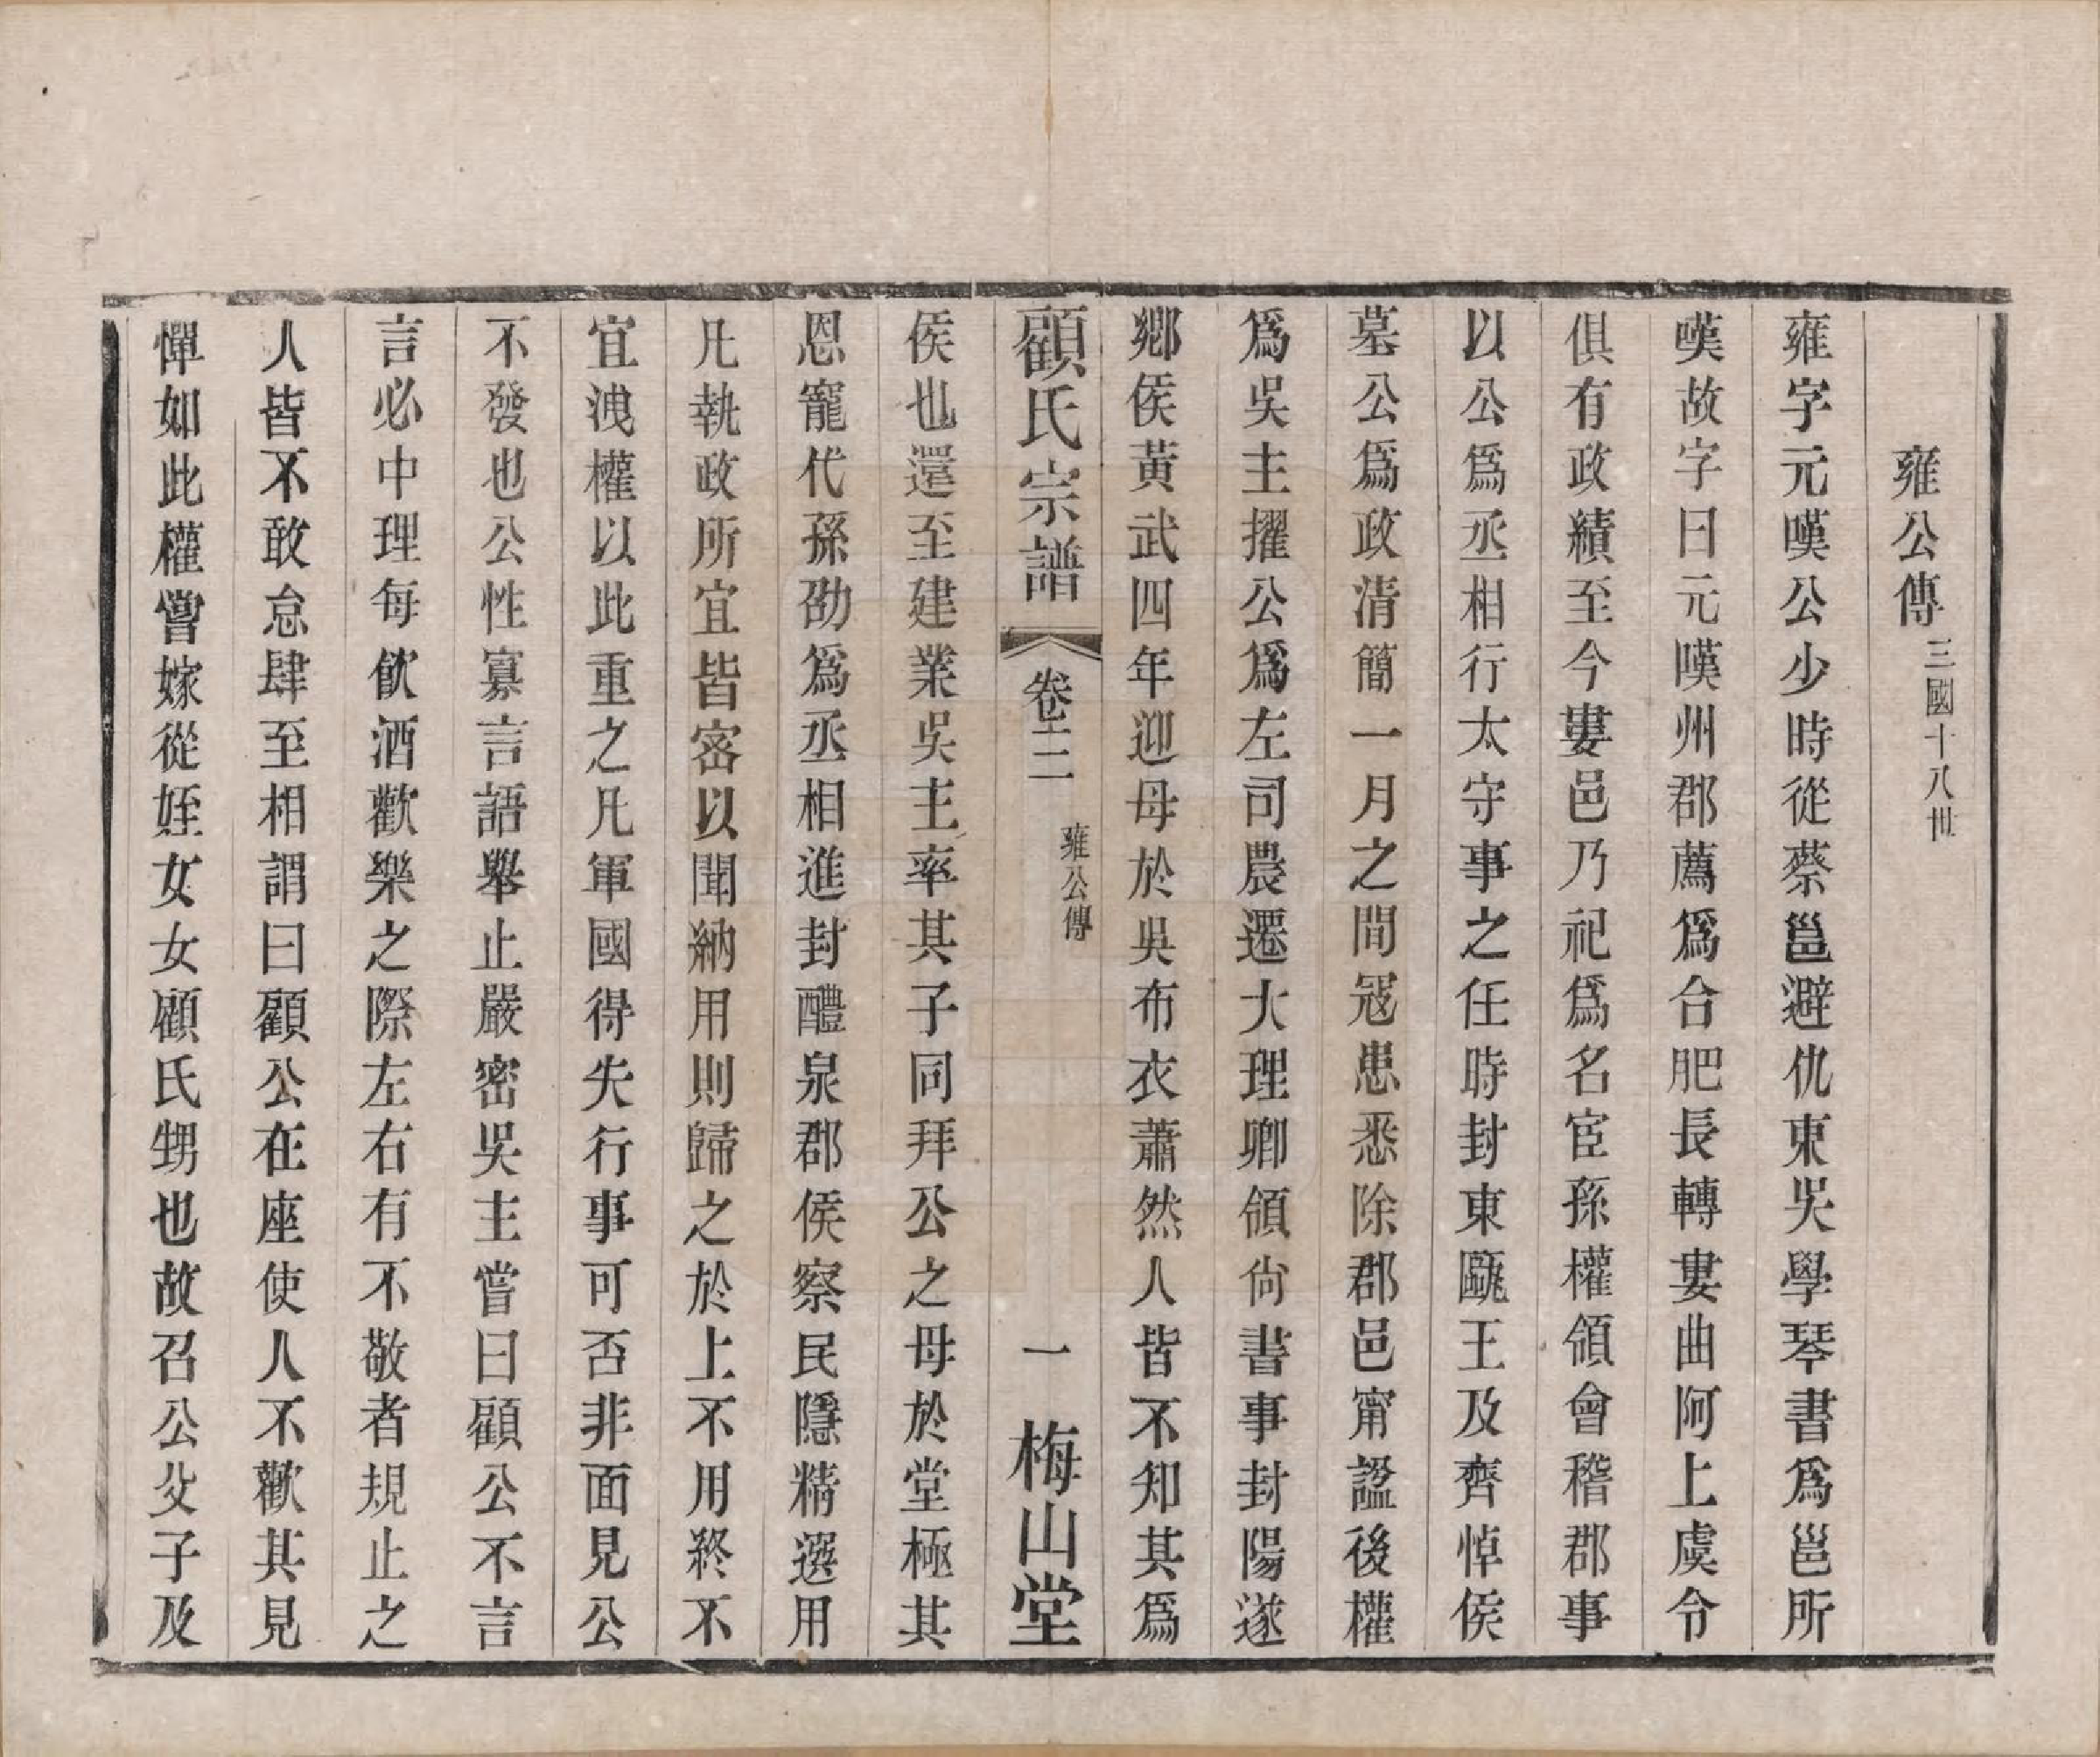 雍公傳三國十八世
雍字元嘆公少時從蔡邕避仇東吳學琴書爲邕所
嘆故字曰元嘆州郡薦爲合肥長轉婁曲阿上虞令
俱有政績至今婁邑乃祀爲名宦孫權領會稽郡事
以公爲丞相行太守事之任時封東甌王及齊悼侯
墓公爲政清簡一月之間冦患悉除郡邑甯謐後權
爲吳主擢公爲左司農遷大理卿領尙書事封陽遂
鄉侯黃武四年迎母於吳布衣蕭然人皆不知其爲
顧氏宗譜 卷二 雍公傳 一 梅山堂
侯也還至建業吳主率其子同拜公之母於堂極其
恩寵代孫劭爲丞相進封醴泉郡侯察民隱精選用
凡執政所宜皆密以聞納用則歸之於上不用終不
宜洩權以此重之凡軍國得失行事可否非面見公
不發也公性寡言語舉止嚴密吳主嘗曰顧公不言
言必中理每飮酒歡樂之際左右有不敬者規止之
人皆不敢怠肆至相謂曰顧公在座使人不歡其見
憚如此權嘗嫁從姪女女顧氏甥也故召公父子及